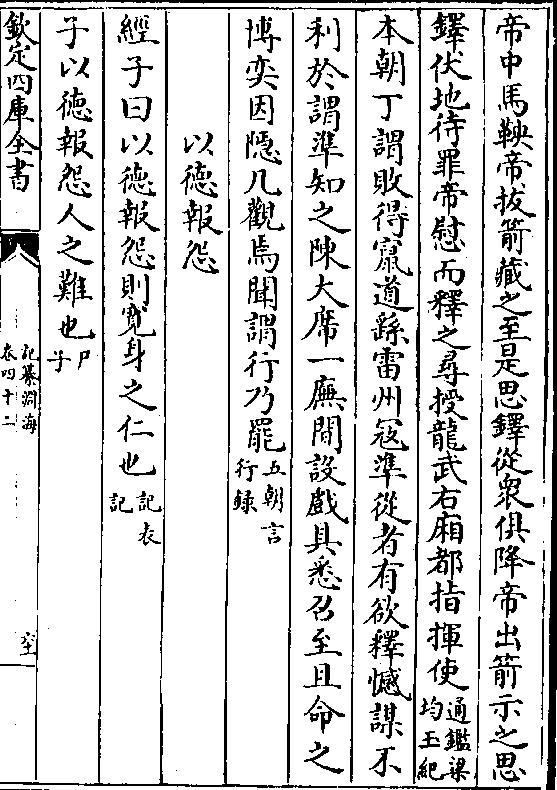 帝中馬鞅帝拔箭藏之至是思鐸從衆俱降帝出箭示之思
鐸伏地待罪帝慰而釋之尋授龍武右廂都指揮使通鑑梁均王紀
本朝丁謂敗得竄道繇雷州冦準從者有欲釋憾謀不
利於謂準知之陳大席一廡間設戲具悉召至且命之
博奕因隠几觀焉聞謂行乃罷五朝言行録
以德報怨
經子曰以德報怨則寛身之仁也記表記
子以德報怨人之難也尸子
欽定四庫全書
記纂淵海
卷四十二